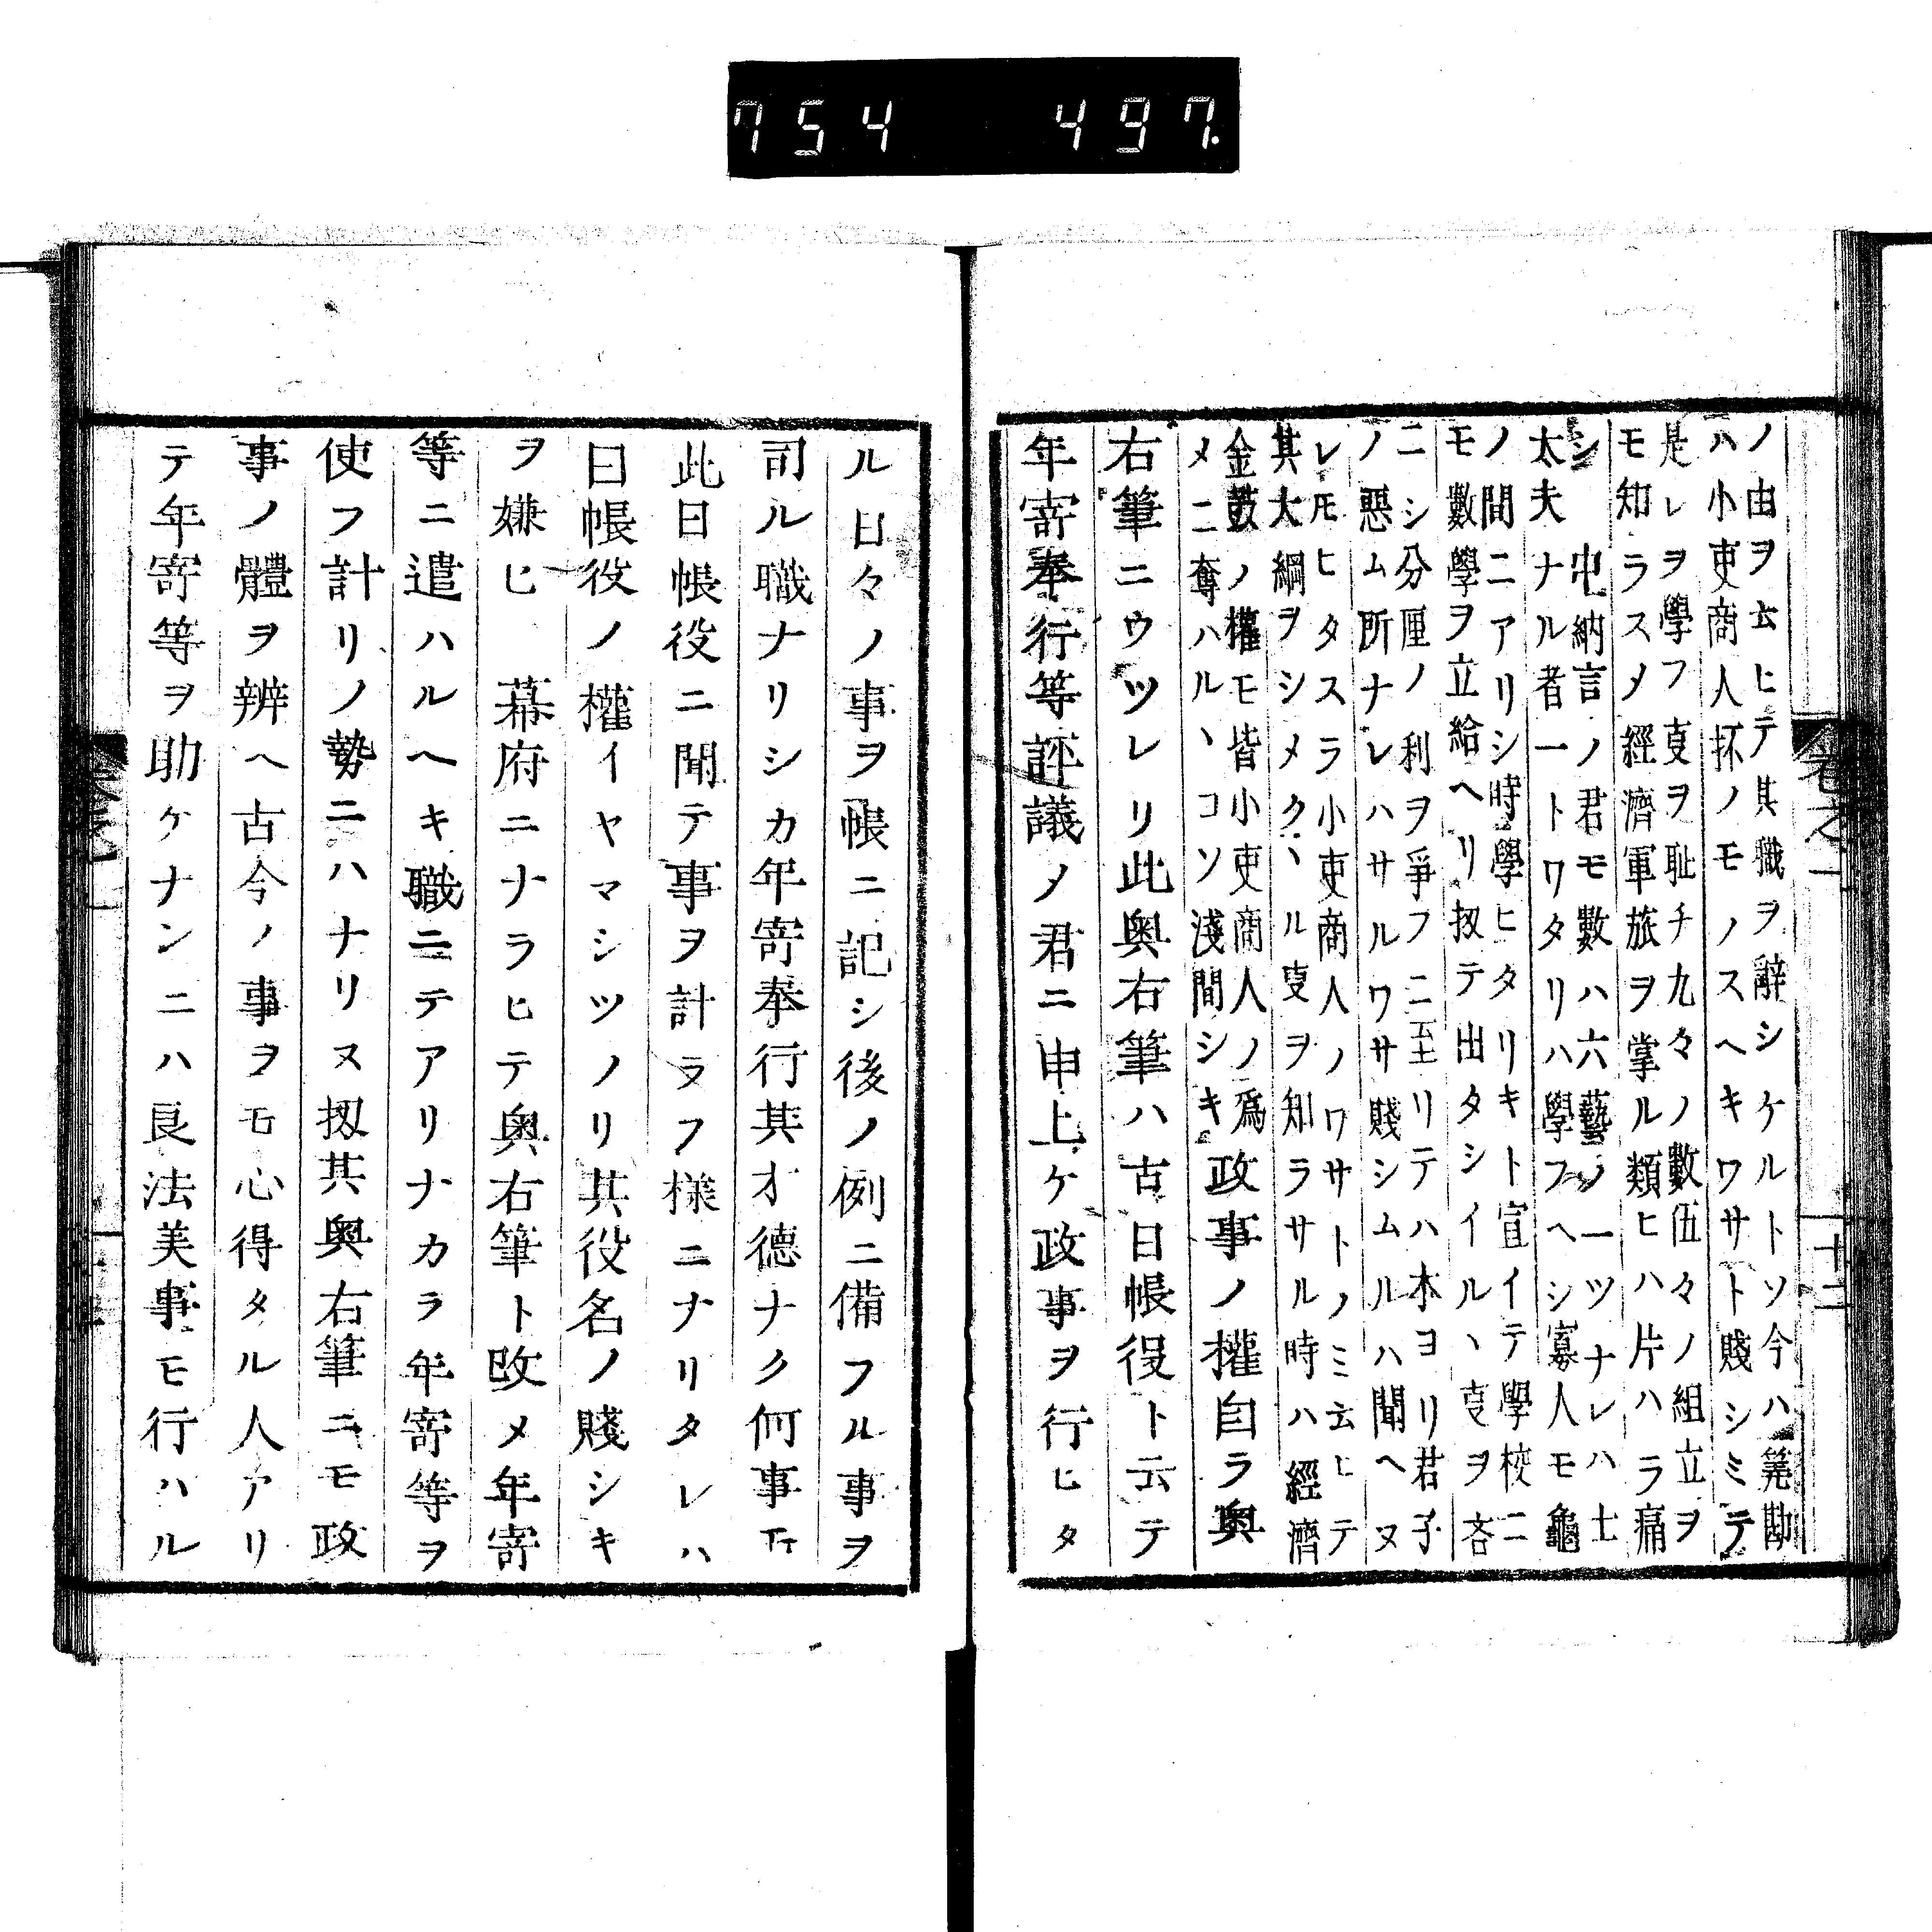 754 497.
ノ由ヲ云ヒテ其職ヲ辭シケルトソ今ハ筭勘
ハ小吏商人抔ノモノスヘキワサト賤シミテ
是レヲ學フ㕝ヲ耻チ九々ノ數伍々ノ組立ヲ
モ知ラスメ經濟軍旅ヲ掌ル類ヒハ片ハラ痛
シ 中納言ノ君モ數ハ六藝ノ一ツナレハ士
太夫ナル者一トワタリハ學フヘシ寡人モ龜
ノ間ニアリシ時學ヒタリキト宣イテ學校ニ
モ數學ヲ立給ヘリ扨テ出タシイルヽ㕝ヲ吝
ニシ分厘ノ利ヲ爭フニ至リテハ本ヨリ君子
ノ惡ム所ナレハサルワサ賤シムルハ聞ヘヌ
レ𪜈ヒタスラ小吏商人ノワサトノミ云ヒテ
其大綱ヲシメクヽル㕝ヲ知ラサル時ハ經濟
金鼓ノ權モ皆小吏商人ノ爲
メニ奪ハルヽコソ淺間シキ
政事ノ權自ラ奥
右筆ニウツレリ此奥右筆ハ古日帳役ト云テ
年寄奉行等評議ノ君ニ申上ケ政事ヲ行ヒタ
卷之一
十二
ル日々ノ事ヲ帳ニ記シ後ノ例ニ備フル事ヲ
司ル職ナリシカ年寄奉行其才德ナク何事𪜈
此日帳役ニ聞テ事ヲ計ラフ樣ニナリタレハ
日帳役ノ權イヤマシツノリ其役名ノ賤シキ
ヲ嫌ヒ 幕府ニナラヒテ奥右筆ト改メ年寄
等ニ遣ハルヘキ職ニテアリナカラ年寄等ヲ
使フ計リノ勢ニハナリヌ扨其奥右筆ニモ政
事ノ體ヲ辨ヘ古今ノ事ヲモ心得タル人アリ
テ年寄等ヲ助ケナンニハ良法美事モ行ハル